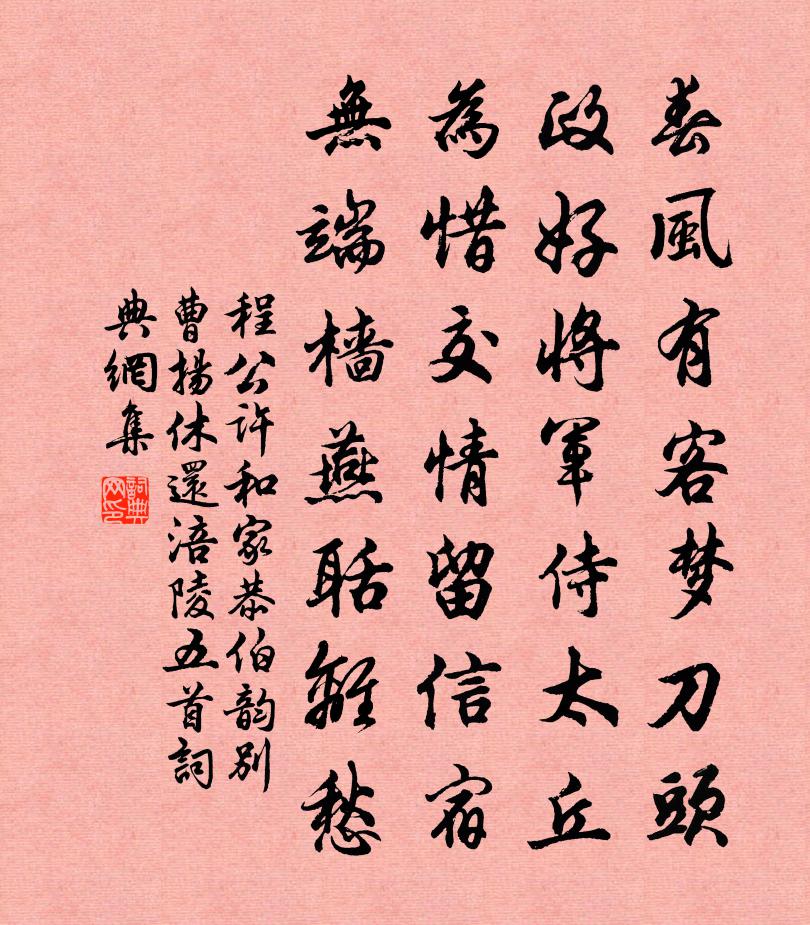 春風有客梦刀頭
政好將軍侍太丘
為惜交情留信宿
無端檣燕聒離愁
程公許和家恭伯韵别
曹揚休還涪陵五首詞
典網集
詞典網印